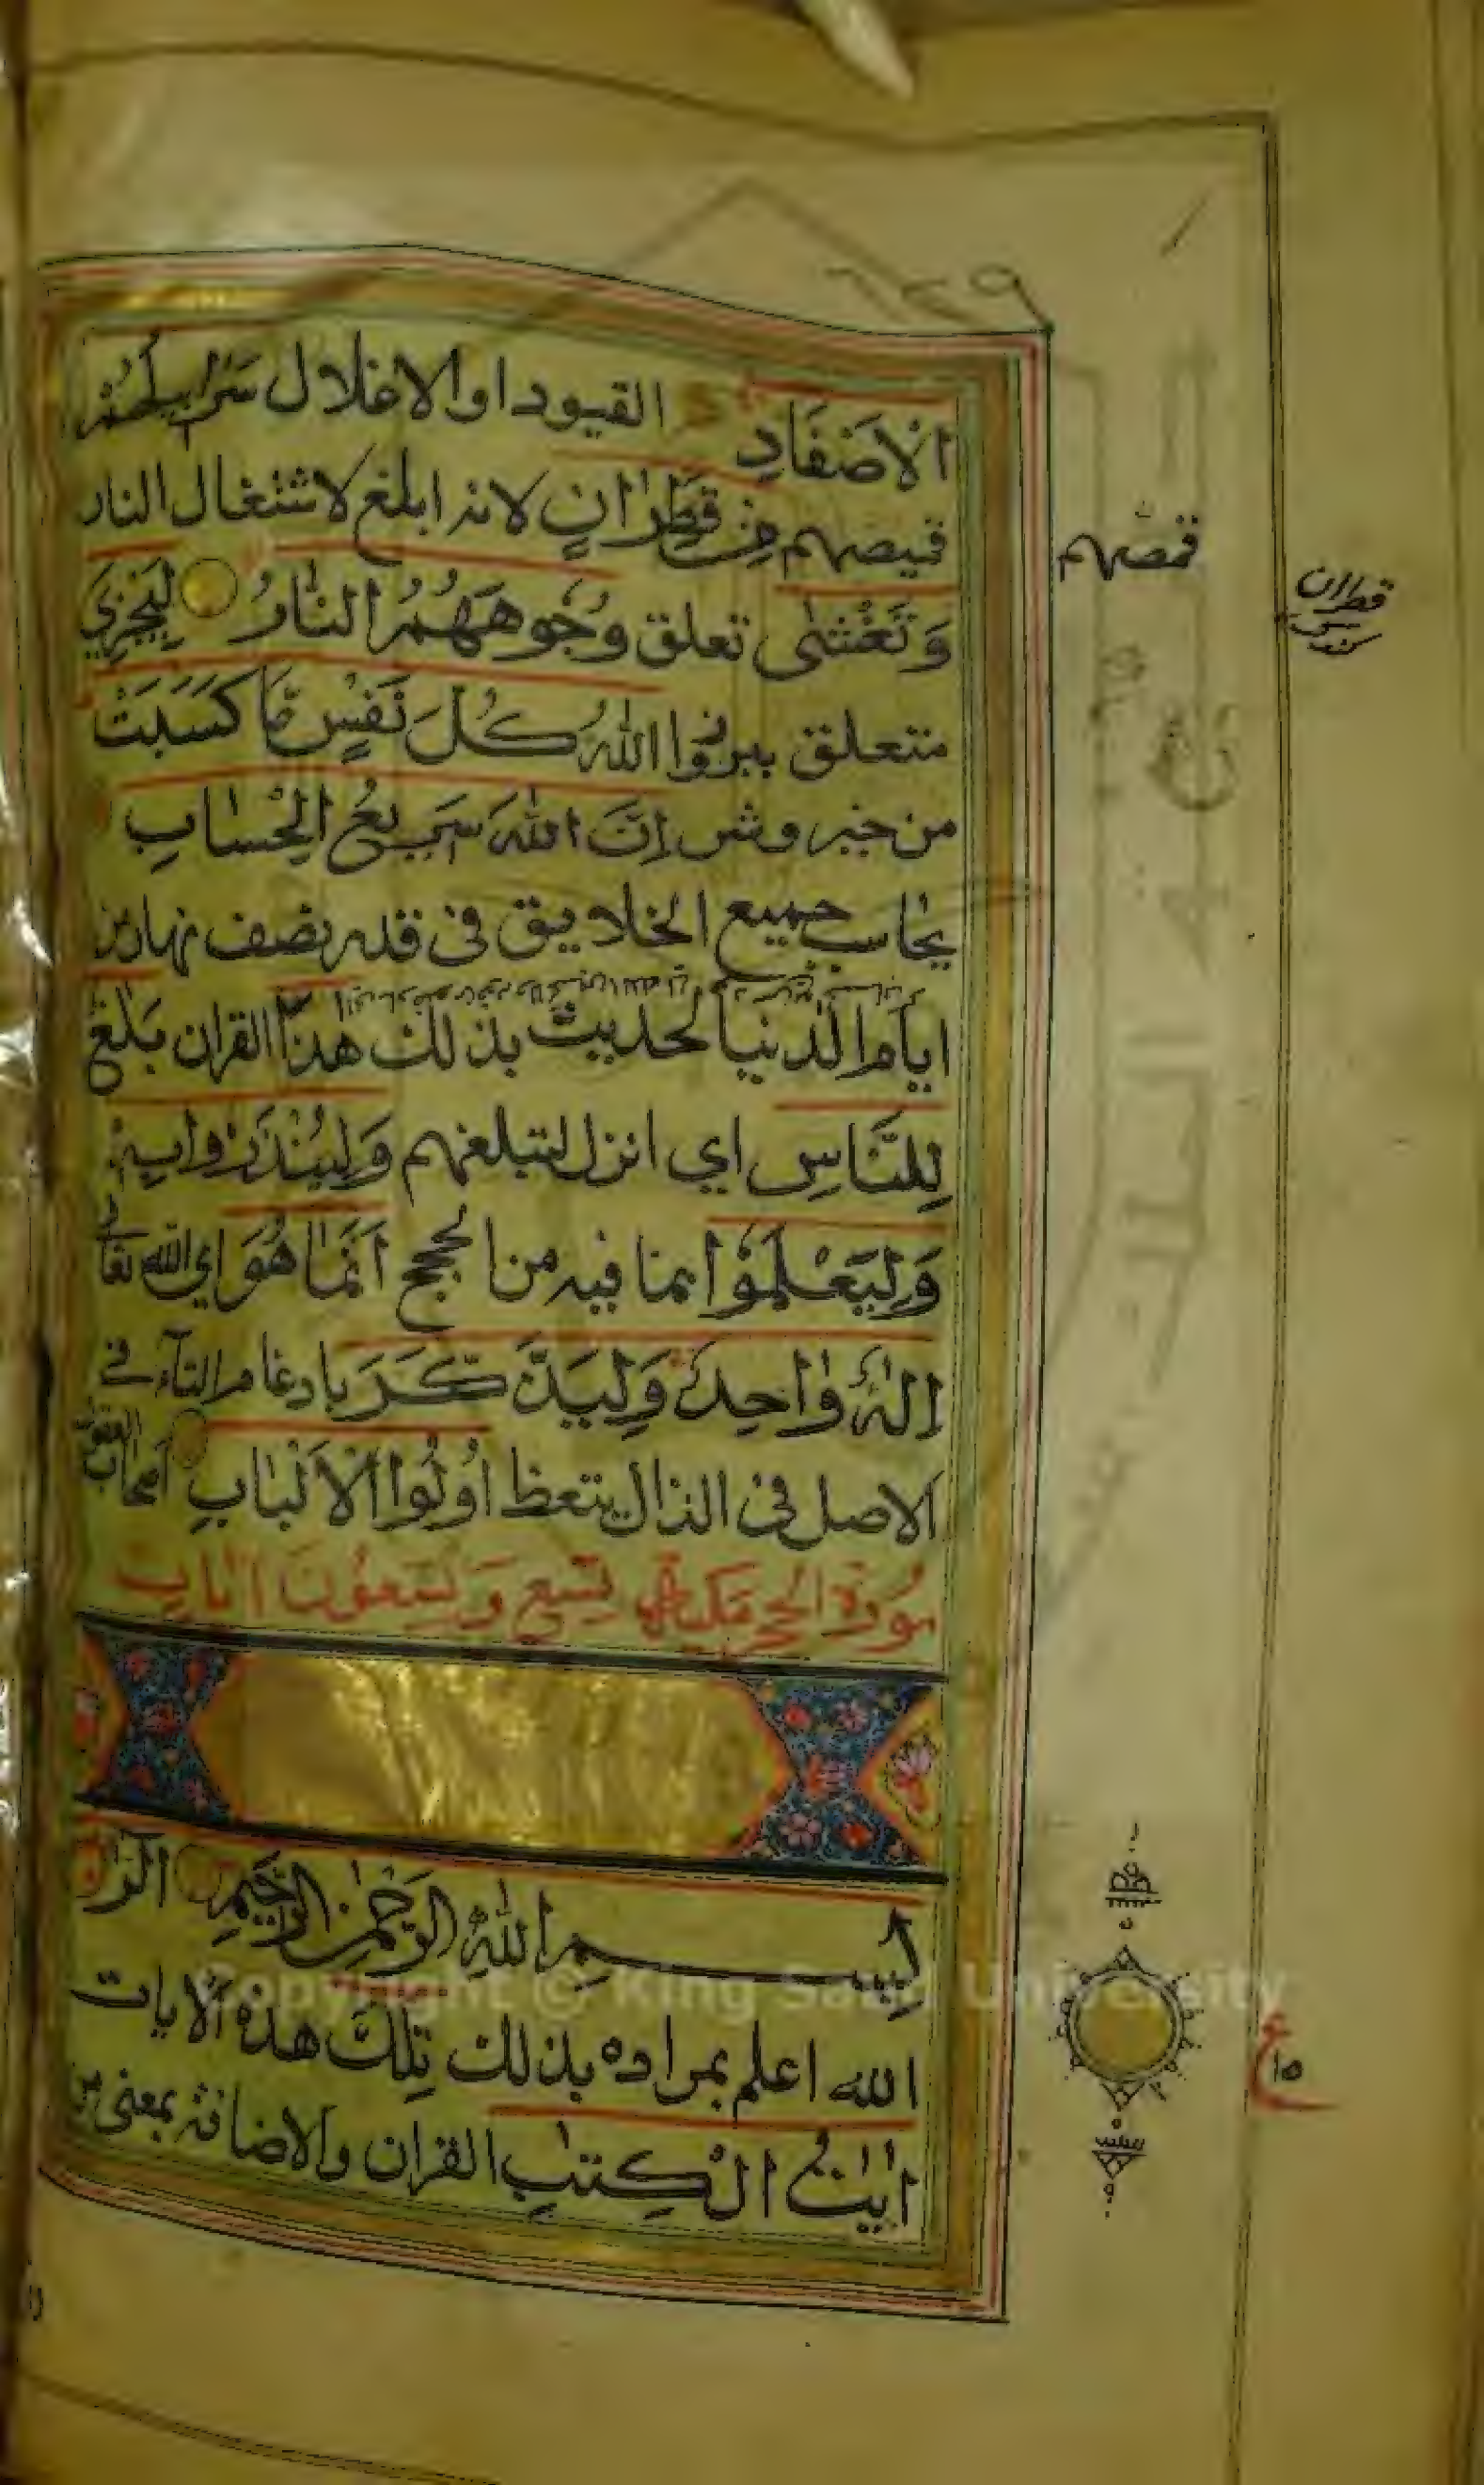 الْاَصْفَادِ القيود او الاغلال سَرَابِيلُهُمْ
قميصهم مِنْ قَطِرَانٍ لانه ابلغ لاشتغال النار
وَتَغْشٰى تعلق وُجُوهَهُمُ النَّارُ لِيَجْزِيَ
متعلق ببرزوا اللّٰهُ كُلَّ نَفْسٍ مَّا كَسَبَتْ
من خير وشر اِنَّ اللّٰهَ سَرِيعُ الْحِسَابِ
يحاسب جميع الخلايق في قدر نصف نهار من
ايام الدنيا لحديث بذلك هٰذَا القران بَلٰغٌ
لِلنَّاسِ اي انزل لتبلغهم وَلِيُنْذَرُوا بِهٖ
وَلِيَعْلَمُوْا بما فيه من الحجج اَنَّمَا هُوَ اي الله تعالى
اِلٰهٌ وَّاحِدٌ وَلِيَذَّكَّرَ بادغام التآء في
الاصل في الذال يتعظ اُولُوا الْاَلْبَابِ اصحاب العقول
سُورَة الحجر مكية تِسْع وَتِسْعُونَ اٰيَات
بِسْمِ اللّٰهِ الرَّحْمٰنِ الرَّحِيمِ الٓرٰ
الله اعلم بمراده بذلك تِلْكَ هذه الايات
اٰيٰتُ الْكِتٰبِ القران والاضافة بمعنى من
قمصهم
قطران
ع
١٥
Copyright © King Saud University